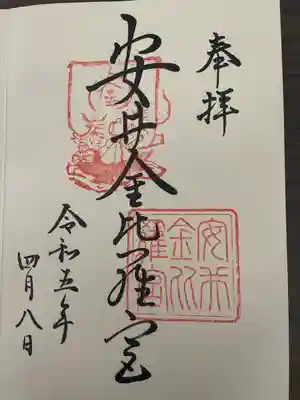 奉拝
安井金比羅宮
令和五年
四月八日
安井
金比
羅宮